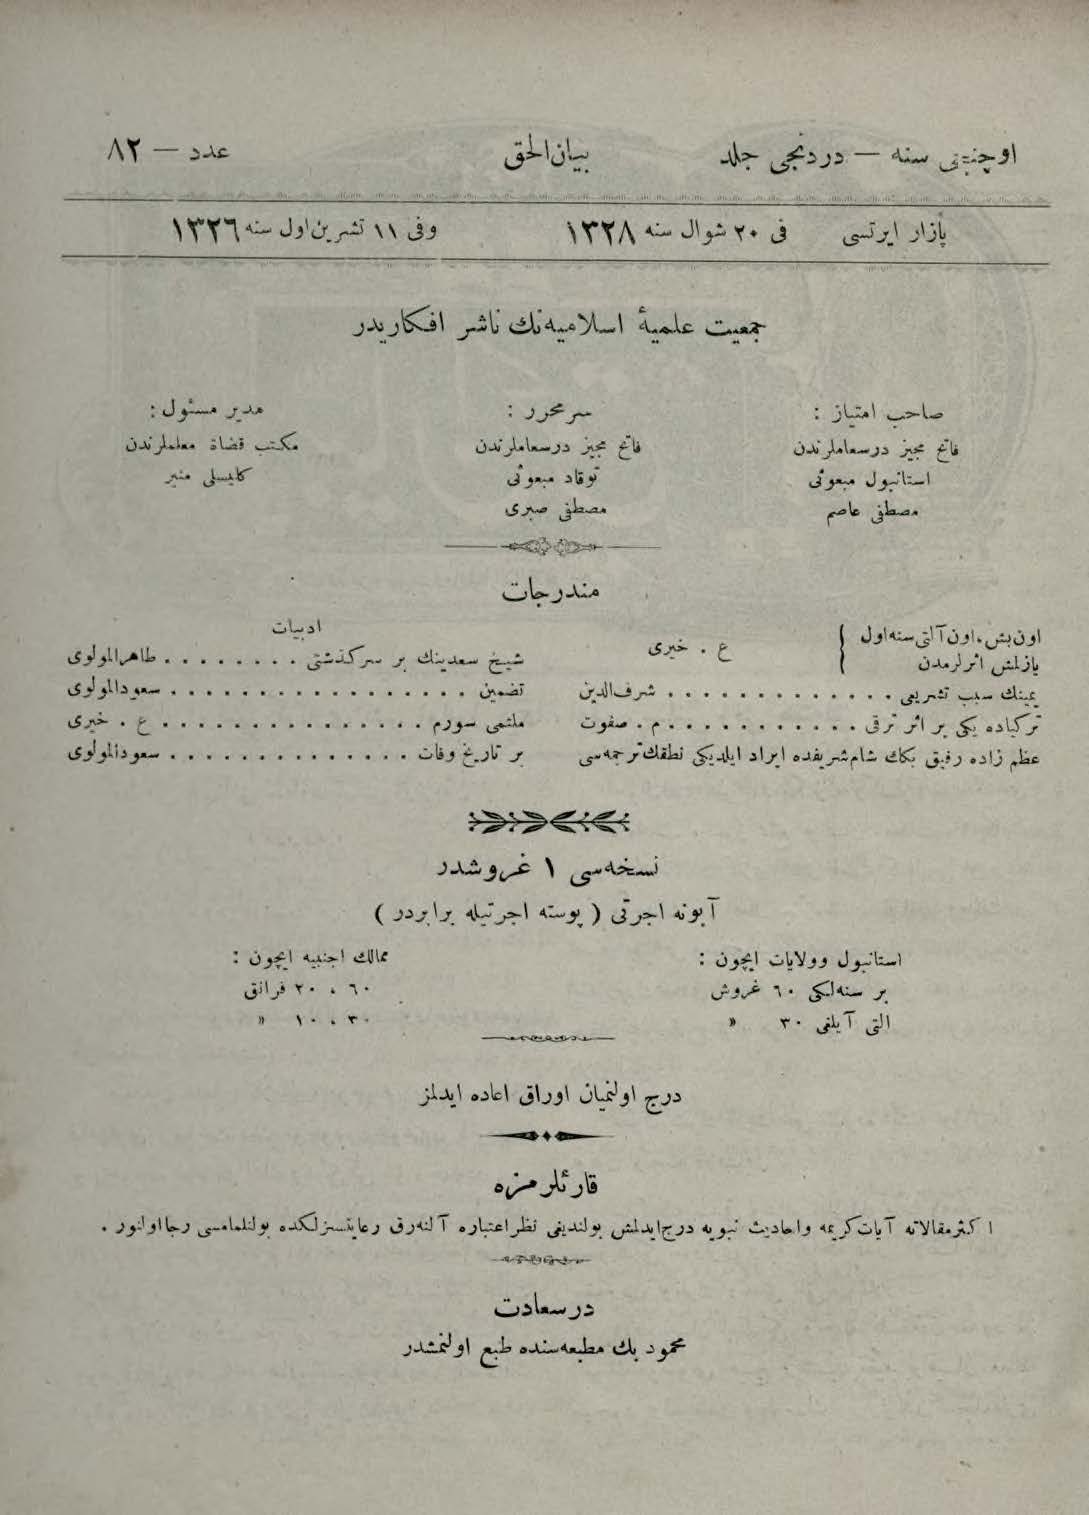 اوچنجی سنه — دردنجی جلد بیان‌الحق عدد — ٨٢
پازار ایرتسی فی ٢٠ شوال سنه ١٣٢٨ وفی ١١ تشرین‌اول سنه ١٣٢٦
جمعیت علمیهٔ اسلامیه‌نك ناشر افكاریدر
صاحب امتیاز :
فاتح مجیز درسعاملرندن
استانبول مبعوثی
مصطفی عاصم
سرمحرر :
فاتح مجیز درسعاملرندن
توقاد مبعوثی
مصطفی صبری
مدیر مسئول :
مكتب قضاة معلملرندن
كلیسلی منیر
مندرجات
اون‌بش،اون‌آلتی‌سنه‌اول
یازلمش اثرلرمدن } ع . خیری
یمینك سبب تشریعی . . . . . . . . . . . . شرف‌الدین
تركیاده یكی بر اثر ترقی . . . . . . . . . . . م . صفوت
عظم زاده رفیق بكك شام‌شریفده ایراد ایلدیكی نطقك‌ترجمه‌سی
ادبیات
شیخ سعدینك بر سركذشتی . . . . . . . . طاهرالمولوی
تضمین . . . . . . . . . . . . . . . . . سعودالمولوی
ملتمی سورم . . . . . . . . . . . . . . . ع . خیری
بر تاریخ وفات . . . . . . . . . . . . . سعودالمولوی
نسخه‌سی ١ غروشدر
آبونه اجرتی ( پوسته اجرتیله برابردر )
استانبول وولایات ایچون :
بر سنه‌لكی ٦٠ غروش
التی آیلغی ٣٠ «
ممالك اجنبیه ایچون :
٦٠ ، ٢٠ فرانق
٣٠ ، ١٠ «
درج اولنمیان اوراق اعاده ایدلمز
قارئلرمزه
اكثرمقالاته آیات‌كریمه واحادیث نبویه درج‌ایدلمش بولندیغی نظراعتباره آلنه‌رق رعایتسزلكده بولنلمامسی رجااولنور .
درسعادت
محمود بك مطبعه‌سنده طبع اولنمشدر